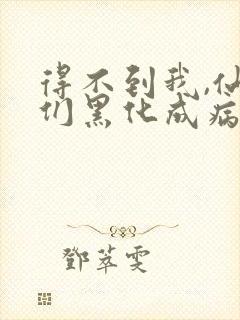 得不到我,仙
们黑化成病
鄧萃雯